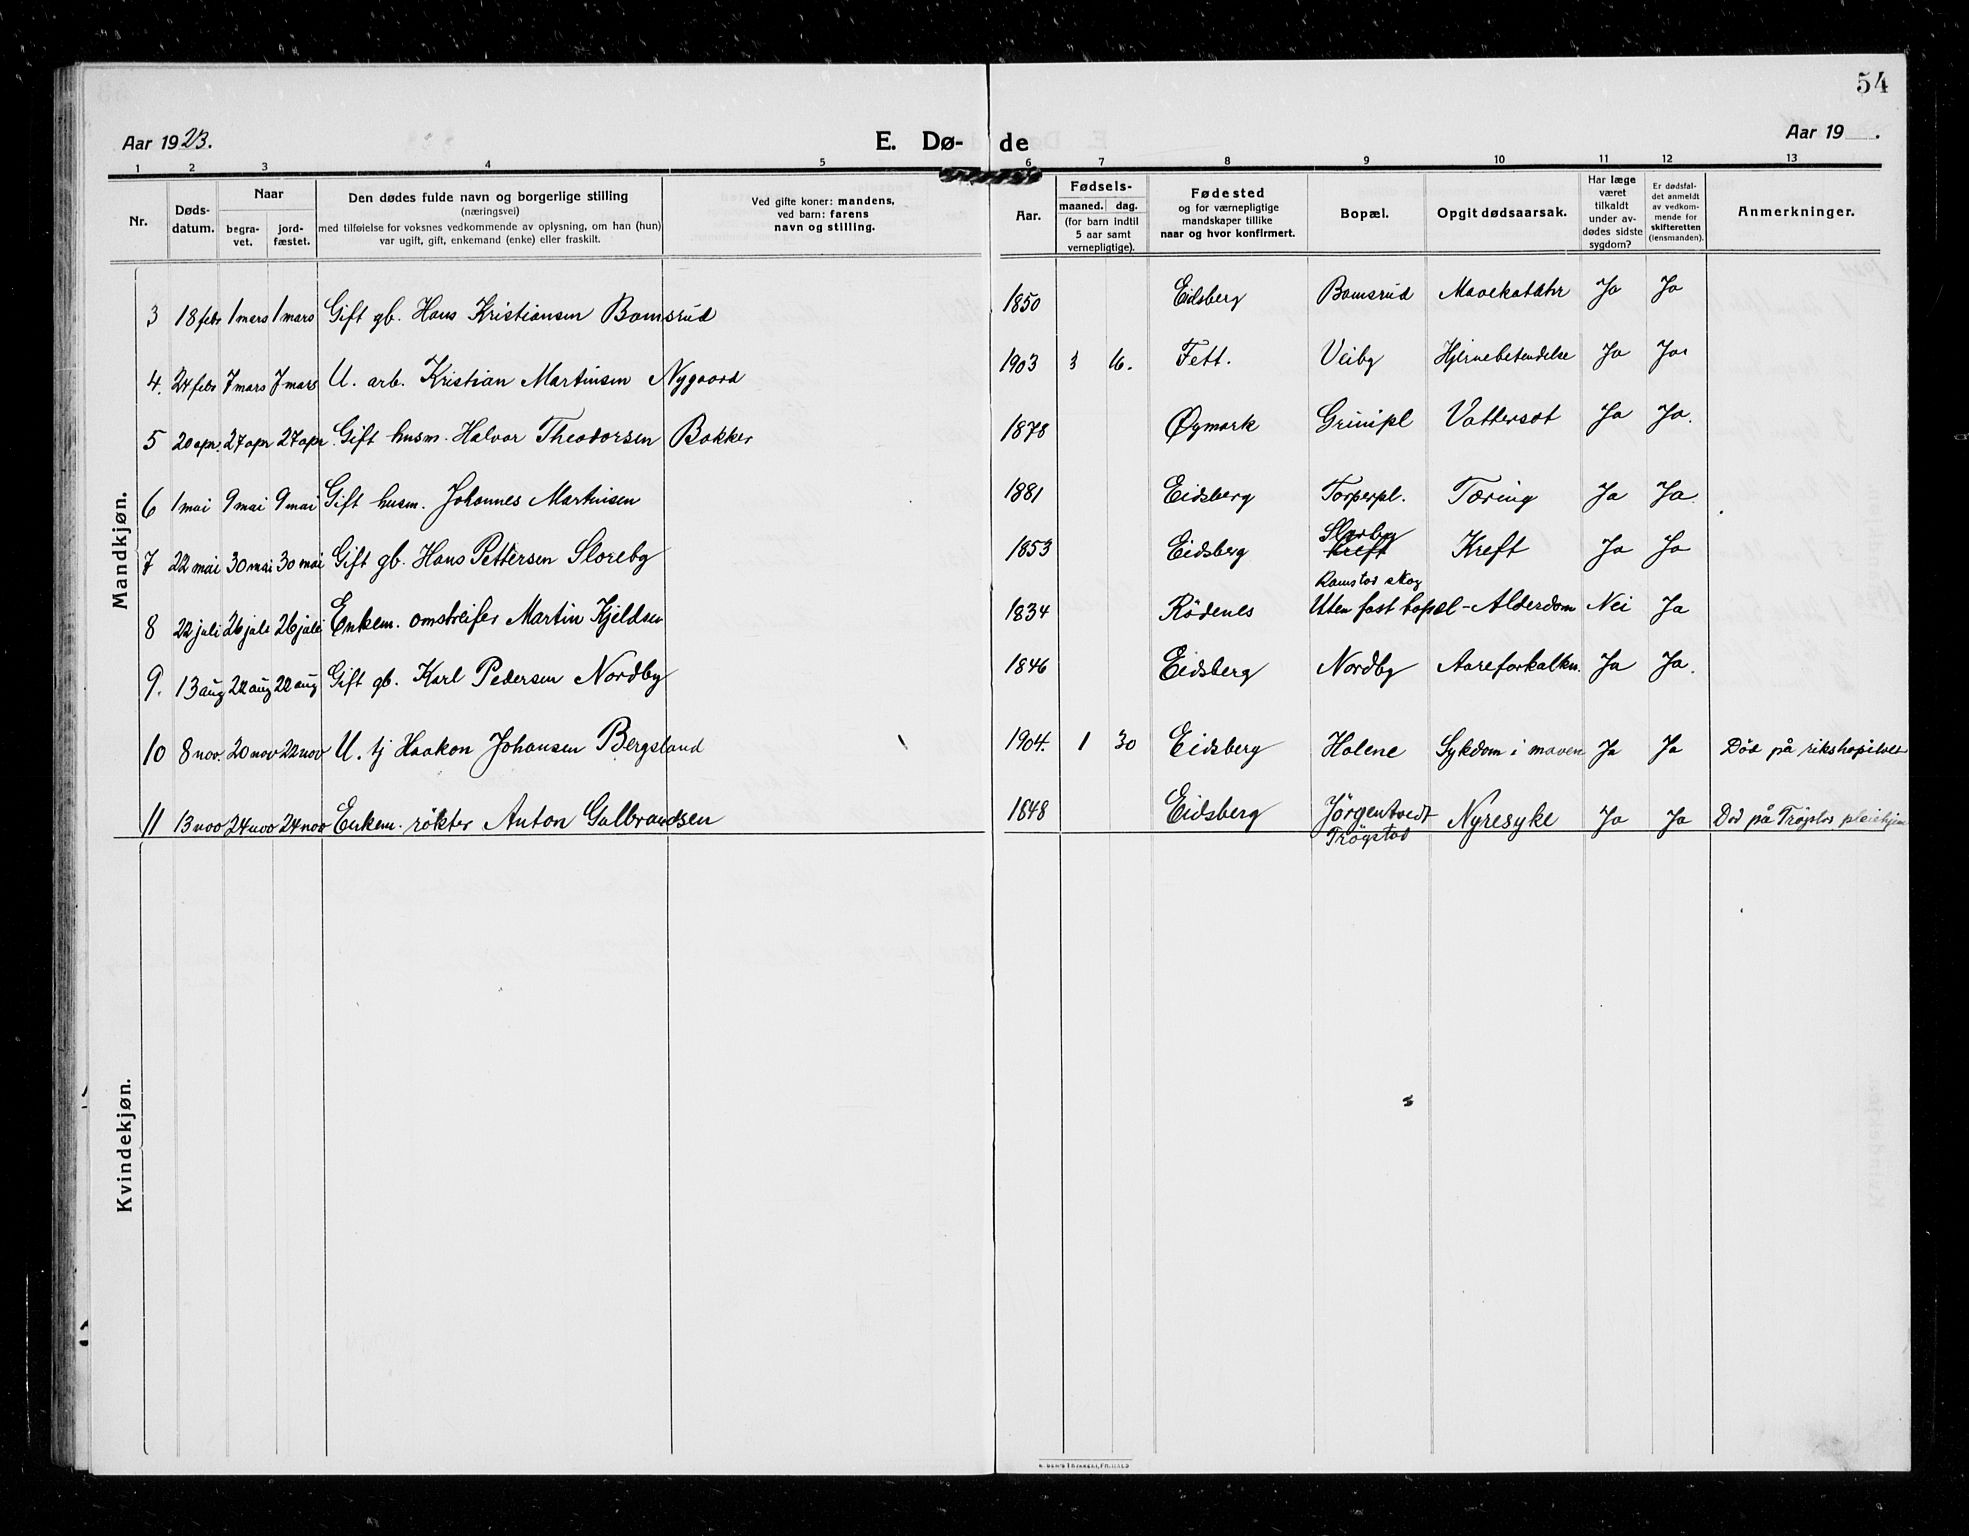 54
Aar 1923.
E. Dø- de
Aar 19 .
1 2 3 4 5 6 7 8 9 10 11 12 13
Nr.
Døds-
datum.
Naar
begra-
vet.
jord-
fæstet.
Den dødes fulde navn og borgerlige stilling
(næringsvei)
med tilføielse for voksnes vedkommende av oplysning, om han (hun)
var ugift, gift, enkemand (enke) eller fraskilt.
Ved gifte koner: mandens,
ved barn: farens
navn og stilling.
Aar.
Fødsels-
maaned. dag.
(for barn indtil
5 aar samt
vernepligtige).
Fødested
og for værnepligtige
mandskaper tillike
naar og hvor konfirmert.
Bopæl.
Opgit dødsaarsak.
Har læge
været
tilkaldt
under av-
dødes sidste
sygdom?
Er dødsfal-
det anmeldt
av vedkom-
mende for
skifteretten
(lensmanden).
Anmerkninger.
Mandkjøn.
3 18 febr 1 mars 1 mars Gift gb. Hans Kristiansen Bamsrud 1850 Eidsberg Bamsrud Mavekatahr Ja Ja
4. 24 febr 7 mars 7 mars U. arb. Kristian Martinsen Nygaard 1903 3 6. Fett. Veiby Hjernebetendelse Ja Ja
5 20 apr. 27 apr 27 apr. Gift husm. Halvor Theodorsen Bakker 1878 Øymark Grinipl Vattersot Ja Ja.
6 1 mai 9 mai 9 mai Gift husm. Johannes Martinsen 1881 Eidsberg Torperpl. Tæring Ja Ja.
7 22 mai 30 mai 30 mai Gift gb. Hans Pettersen Sloreby 1853 Eidsberg Kreft Kreft Ja Ja
Ramstad skog
8 22 juli 26 juli 26 juli Enkem. omstreifer Martin Kjeldsen 1834 Rödenes Uten fast bopæl - Alderdom Nei Ja
9. 13 aug 22 aug 22 aug Gift gb. Karl Pedersen Nordby 1846 Eidsberg Nordby Aareforkalkn. Ja Ja.
10 8 nov. 20 nov 22 nov U. tj Haakon Johansen Bergsland 1904. 1 30 Eidsberg Holene Sykdom i maven Ja Ja Död på rikshopitalet
11 13 nov 24 nov 24 nov Enkem. røkter Anton Gulbrandsen 1848 Eidsberg Jørgentvedt Nyresyke Ja Ja Död på Trøgstad pleiehjem
Trøgstad
Kvindekjøn.